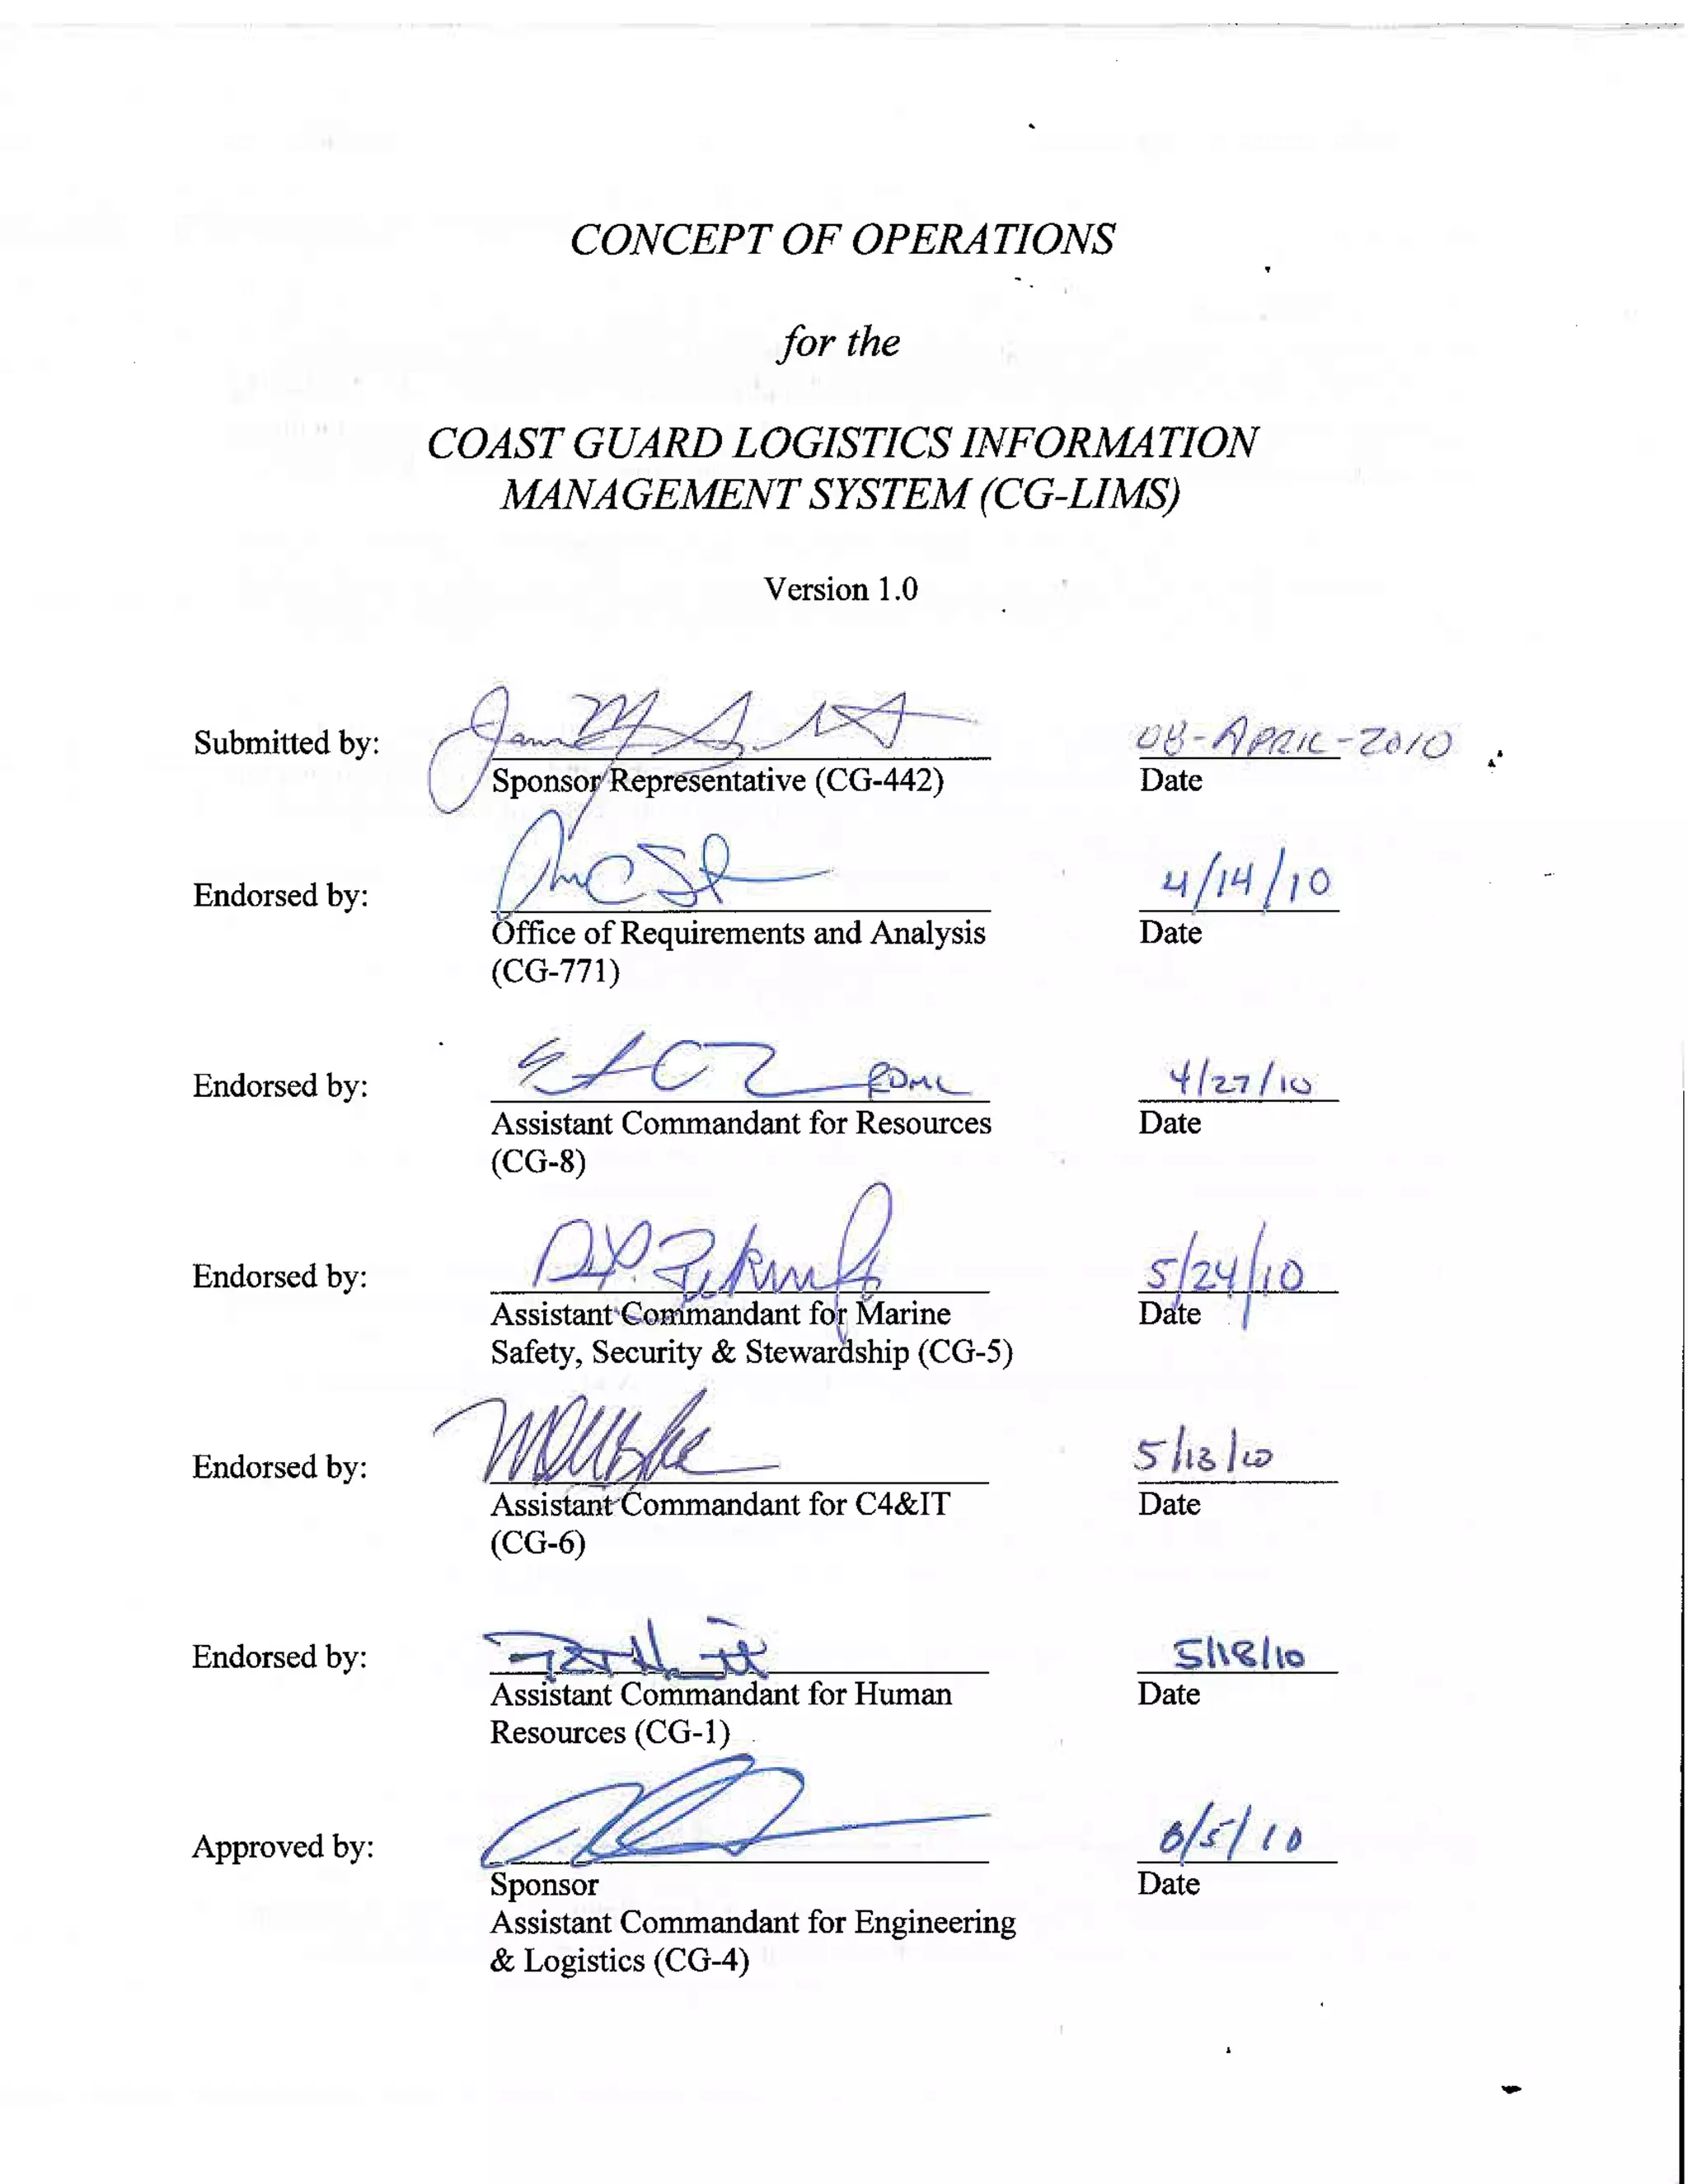 CONCEPT OF OPERATIONS
for the
COAST GUARD LOGISTICS INFORMATION
MANAGEMENT SYSTEM (CG-LIMS)
Version 1.0
Submitted by: 08-APRIL-2010
Sponsor Representative (CG-442) Date
Endorsed by: 4/14/10
Office of Requirements and Analysis Date
(CG-771)
Endorsed by: 4/27/10
Assistant Commandant for Resources Date
(CG-8)
Endorsed by: 5/24/10
Assistant Commandant for Marine Date
Safety, Security & Stewardship (CG-5)
Endorsed by: 5/13/10
Assistant Commandant for C4&IT Date
(CG-6)
Endorsed by: 5/18/10
Assistant Commandant for Human Date
Resources (CG-1)
Approved by:
Sponsor Date
Assistant Commandant for Engineering
& Logistics (CG-4)